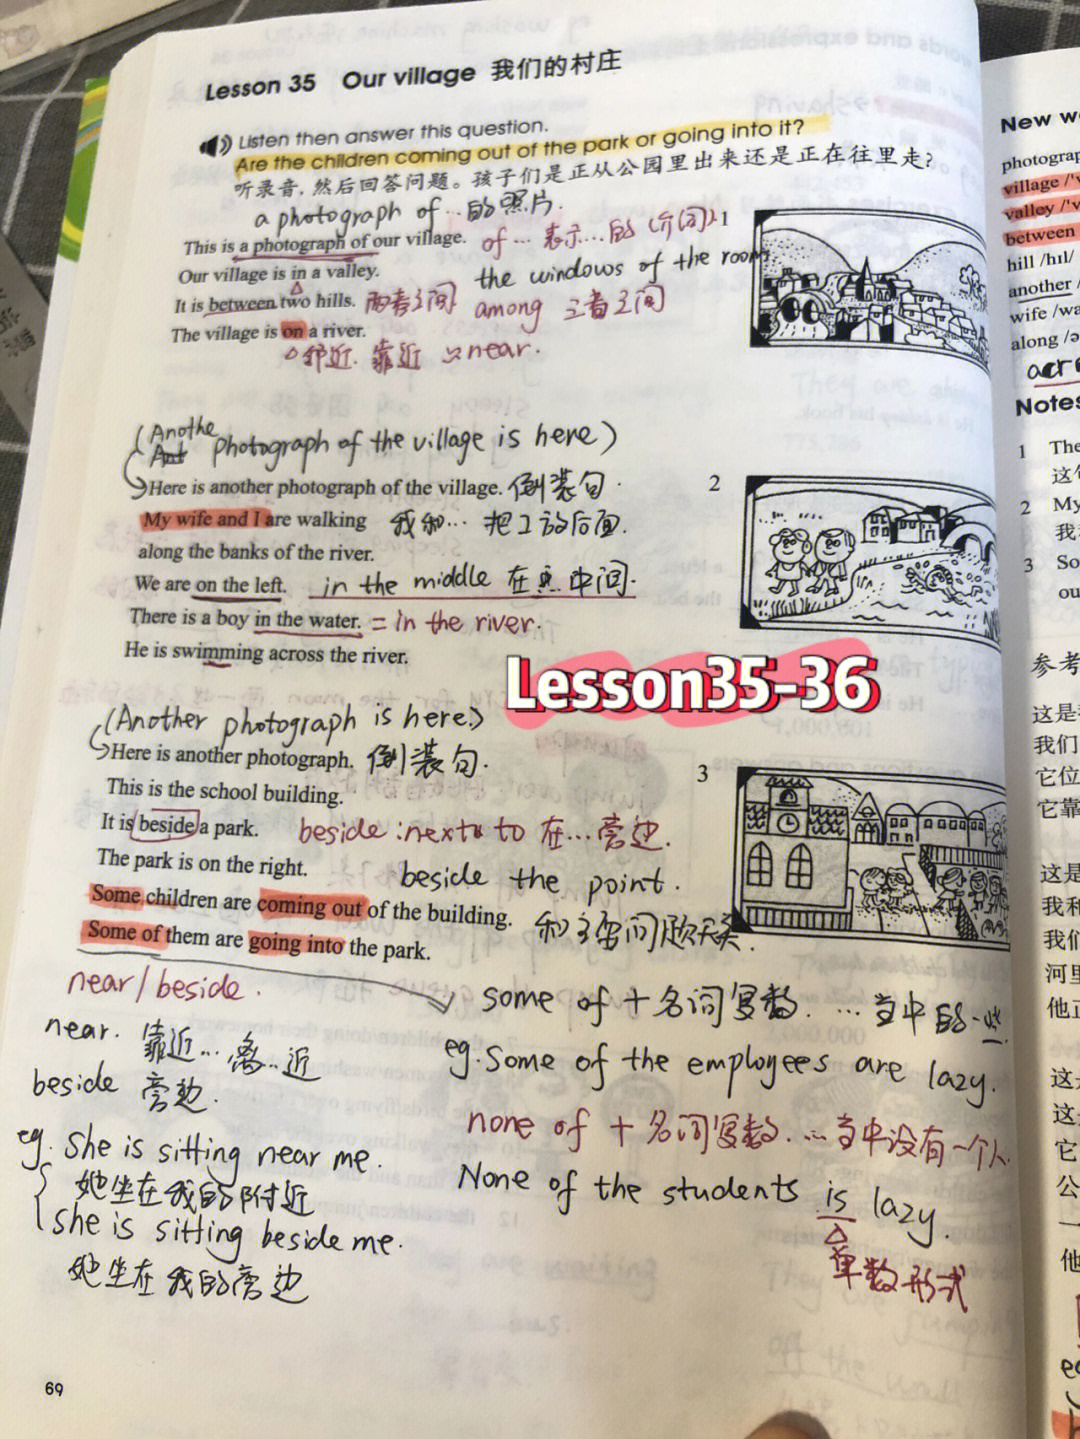 Lesson 35 Our village 我们的村庄
Listen then answer this question.
Are the children coming out of the park or going into it?
听录音，然后回答问题。孩子们是正从公园里出来还是正在往里走？
a photograph of … 的照片.
This is a photograph of our village. of … 表示…的 (介词) 1
Our village is in a valley. the windows of the room
It is between two hills. 两者之间 among 三者之间
The village is on a river.
邻近. 靠近 near.
(Anothe photograph of the village is here)
Here is another photograph of the village. 倒装句. 2
My wife and I are walking 我和… 把I放后面.
along the banks of the river.
We are on the left. in the middle 在…中间.
There is a boy in the water. = in the river.
He is swimming across the river.
Lesson35-36
(Another photograph is here)
Here is another photograph. 倒装句. 3
This is the school building.
It is beside a park. beside : next to 在…旁边.
The park is on the right. beside the point.
Some children are coming out of the building. 和主要问题无关.
Some of them are going into the park.
near / beside. some of + 名词复数. … 当中的一些
near. 靠近… 离..近 eg. Some of the employees are lazy.
beside 旁边. none of + 名词复数. … 当中没有一个人.
eg. She is sitting near me. None of the students is lazy.
她坐在我的附近
she is sitting beside me. 单数形式
她坐在我的旁边
69
New w
photograp
village /'v
valley /'v
between
hill /hɪl/
another /
wife /wa
along /ə
acr
Notes
1 The
这句
2 My
我
3 So
ou
参考
这是
我们
它位
它靠
这是
我和
我们
河里
他正
这
这
它
公
他